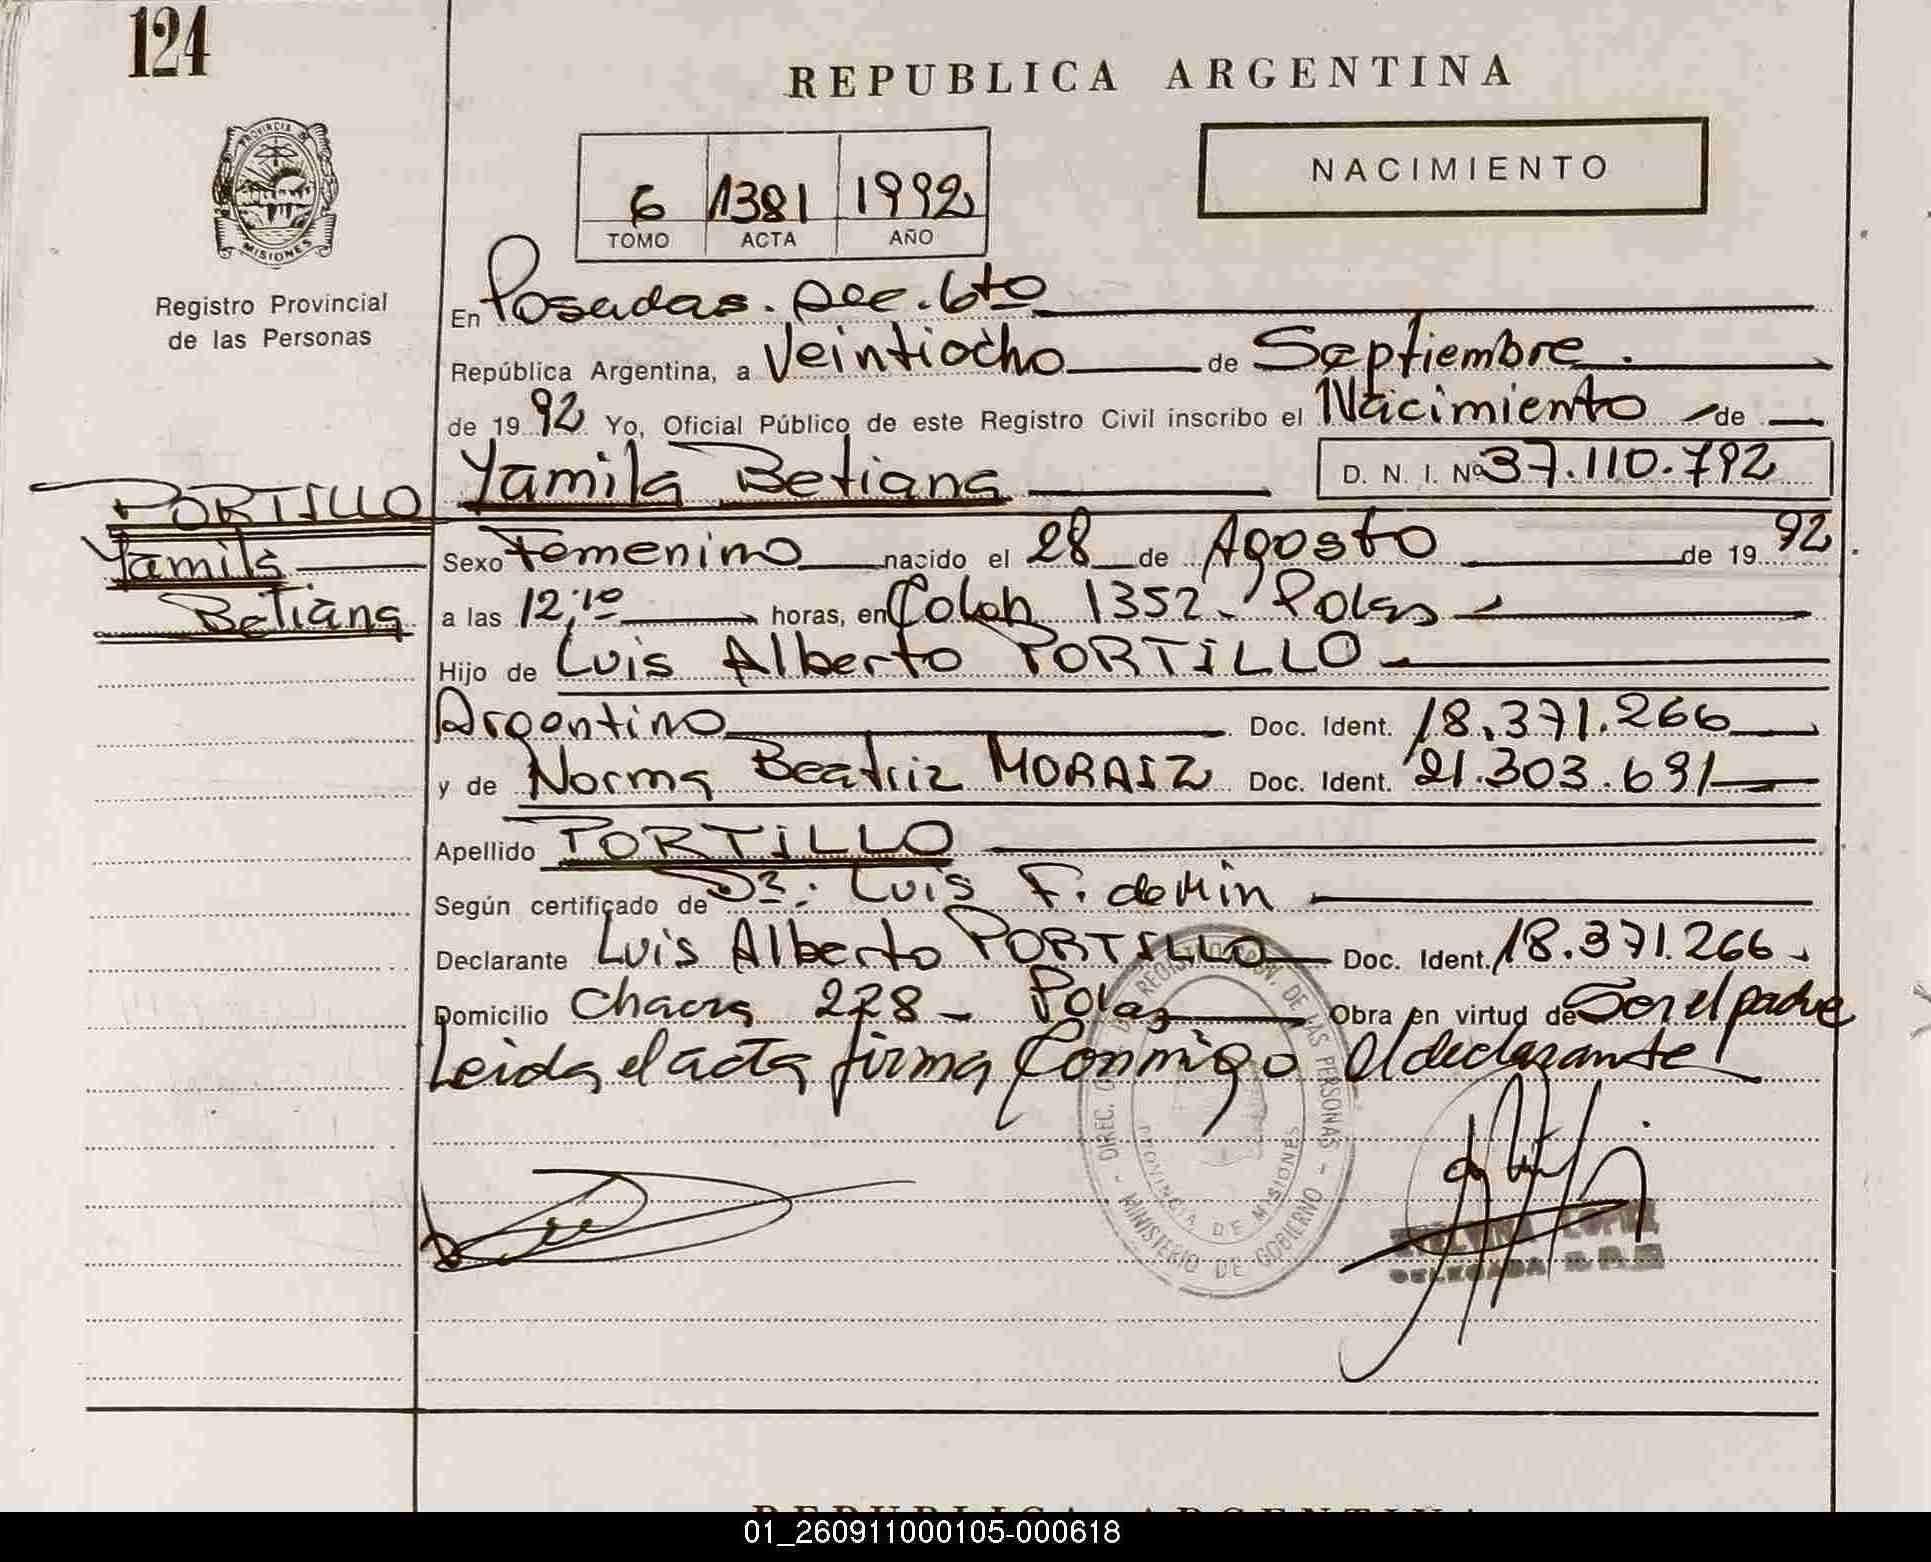 124
REPUBLICA ARGENTINA
PROVINCIA DE
MISIONES
Registro Provincial
de las Personas
NACIMIENTO
6 1381 1992
TOMO ACTA AÑO
En Posadas. Sec. 6to
República Argentina, a Veintiocho de Septiembre.
de 1992 Yo, Oficial Público de este Registro Civil inscribo el Nacimiento de
Yamila Betiana D. N. I. Nº 37.110.792
PORTILLO
Yamila
Betiana
Sexo Femenino nacido el 28 de Agosto de 1992
a las 12:10 horas, en Colon 1352 - Pdas
Hijo de Luis Alberto PORTILLO
Argentino Doc. Ident. 18.371.266
y de Norma Beatriz MORAIZ Doc. Ident. 21.303.691
Apellido PORTILLO
Según certificado de Dr. Luis F. deMin
Declarante Luis Alberto PORTILLO Doc. Ident. 18.371.266
Domicilio Chacra 228 - Pdas Obra en virtud de Ser el padre
Leida el acta firma Conmigo el declarante
DIREC. REGIST. DE LAS PERSONAS - MINISTERIO DE GOBIERNO -
PROVINCIA DE MISIONES
LOPEZ
DELEGADA R.P.P.
REPUBLICA ARGENTINA
01_260911000105-000618